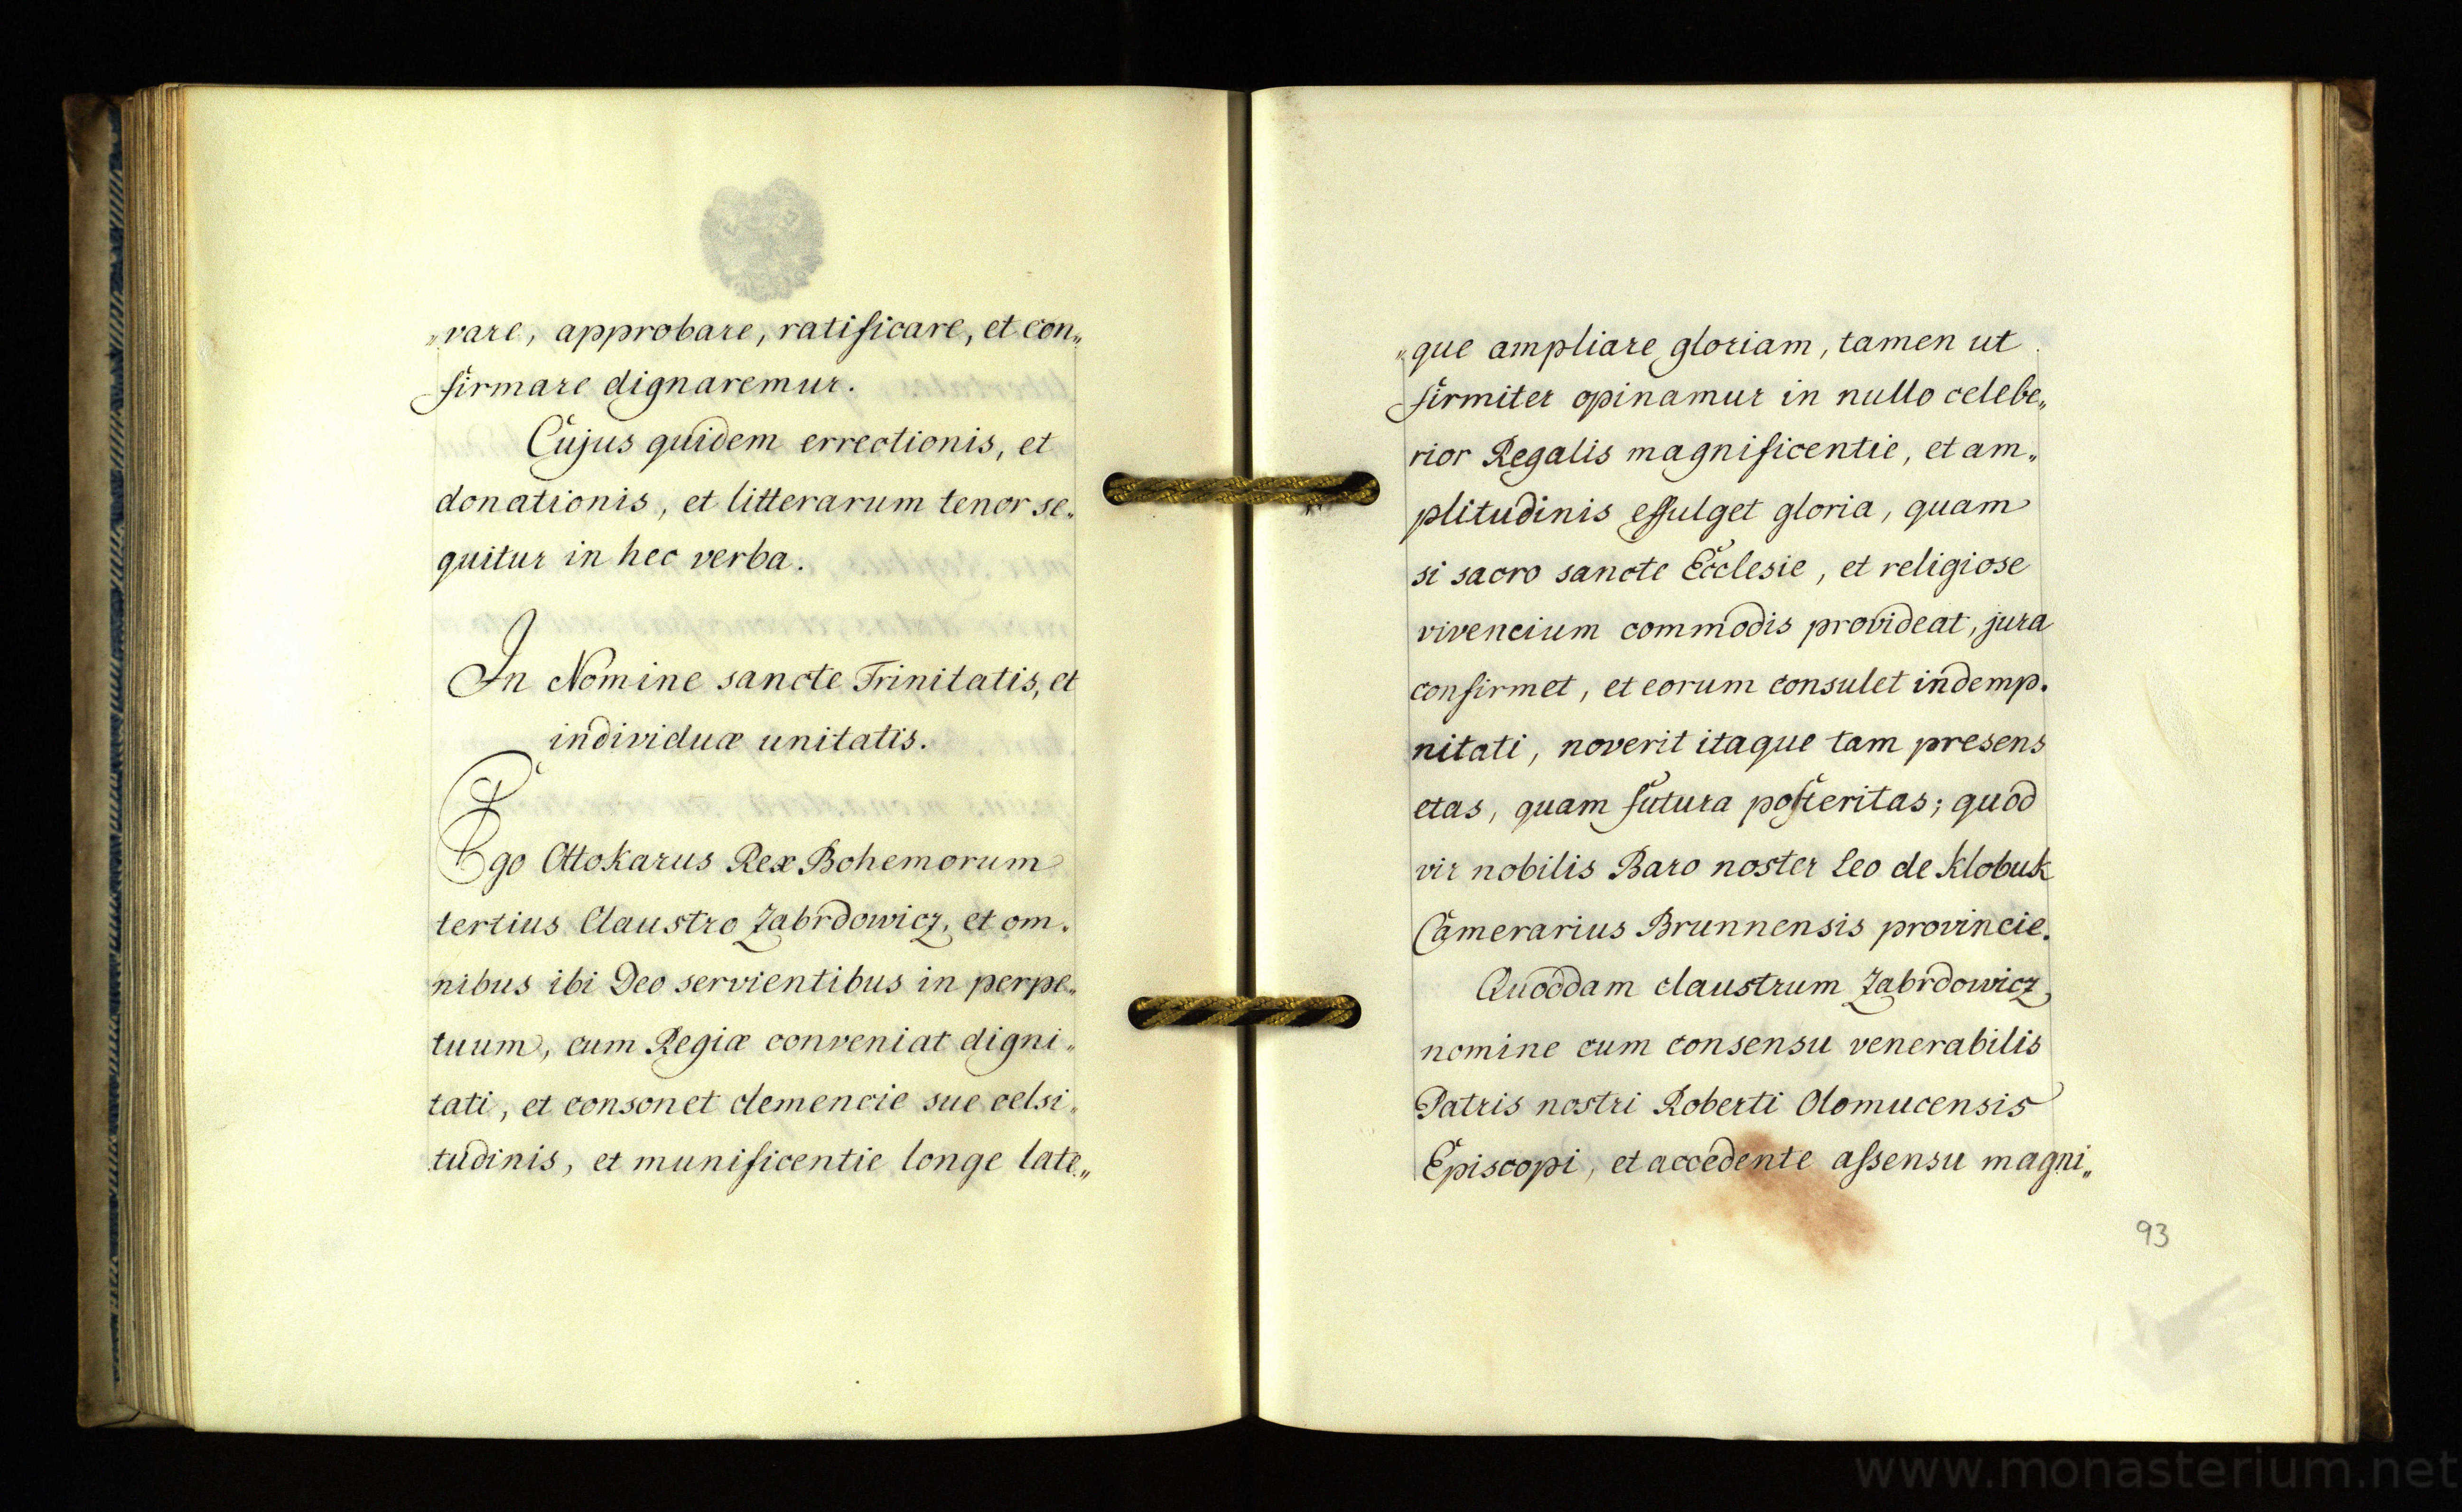 „vare, approbare, ratificare, et con„
firmare dignaremur.
Cujus quidem errectionis, et
donationis, et litterarum tenor se„
quitur in hec verba.
In Nomine sancte Trinitatis, et
individuæ unitatis.
Ego Ottokarus Rex Bohemorum
tertius Claustro Zabrdowicz, et om„
nibus ibi Deo servientibus in perpe„
tuum, cum Regiæ conveniat digni„
tati, et consonet clemencie sue celsi„
tudinis, et munificentie longe late„
„que ampliare gloriam, tamen ut
firmiter opinamur in nullo celebe„
rior Regalis magnificentie, et am„
plitudinis effulget gloria, quam
si sacro sancte Ecclesie, et religiose
vivencium commodis provideat, jura
confirmet, et eorum consulet indemp„
nitati, noverit itaque tam presens
etas, quam futura posteritas; quod
vir nobilis Baro noster Leo de Klobuk
Camerarius Brunnensis provincie.
Quoddam claustrum Zabrdowicz
nomine cum consensu venerabilis
Patris nostri Roberti Olomucensis
Episcopi, et accedente assensu magni„
93
www.monasterium.net